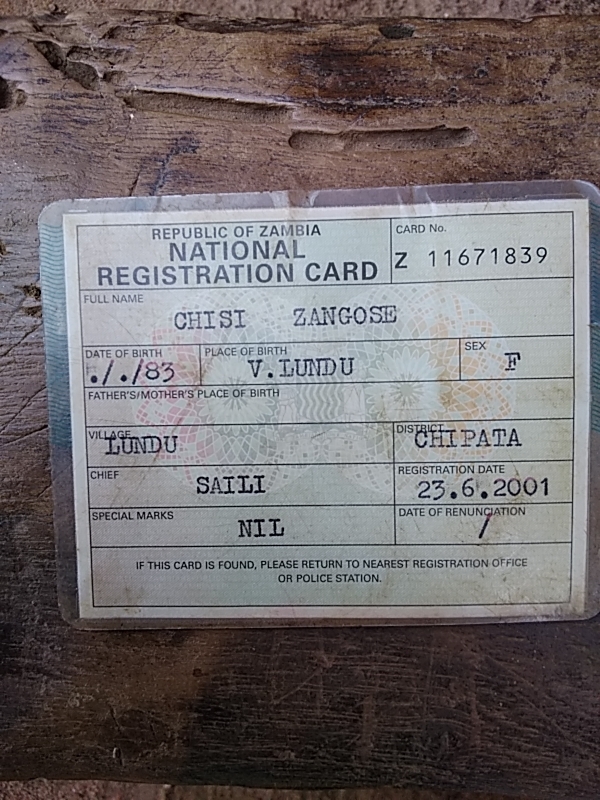 REPUBLIC OF ZAMBIA
NATIONAL
REGISTRATION CARD
CARD No.
Z 11671839
FULL NAME
CHISI ZANGOSE
DATE OF BIRTH
./././83
PLACE OF BIRTH
V.LUNDU
SEX
F
FATHER'S/MOTHER'S PLACE OF BIRTH
VILLAGE
LUNDU
DISTRICT
CHIPATA
CHIEF
SAILI
REGISTRATION DATE
23.6.2001
SPECIAL MARKS
NIL
DATE OF RENUNCIATION
/
IF THIS CARD IS FOUND, PLEASE RETURN TO NEAREST REGISTRATION OFFICE
OR POLICE STATION.